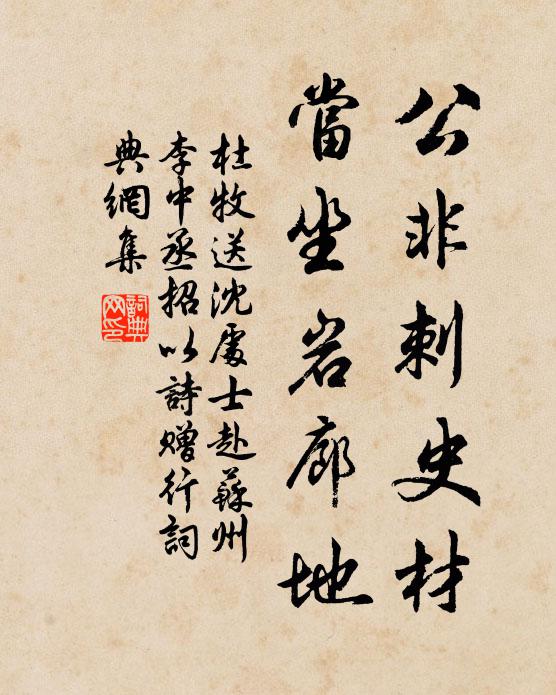 公非刺史材
當坐岩廊地
杜牧送沈處士赴蘇州
李中丞招以詩贈行詞
典網集
詞典网印